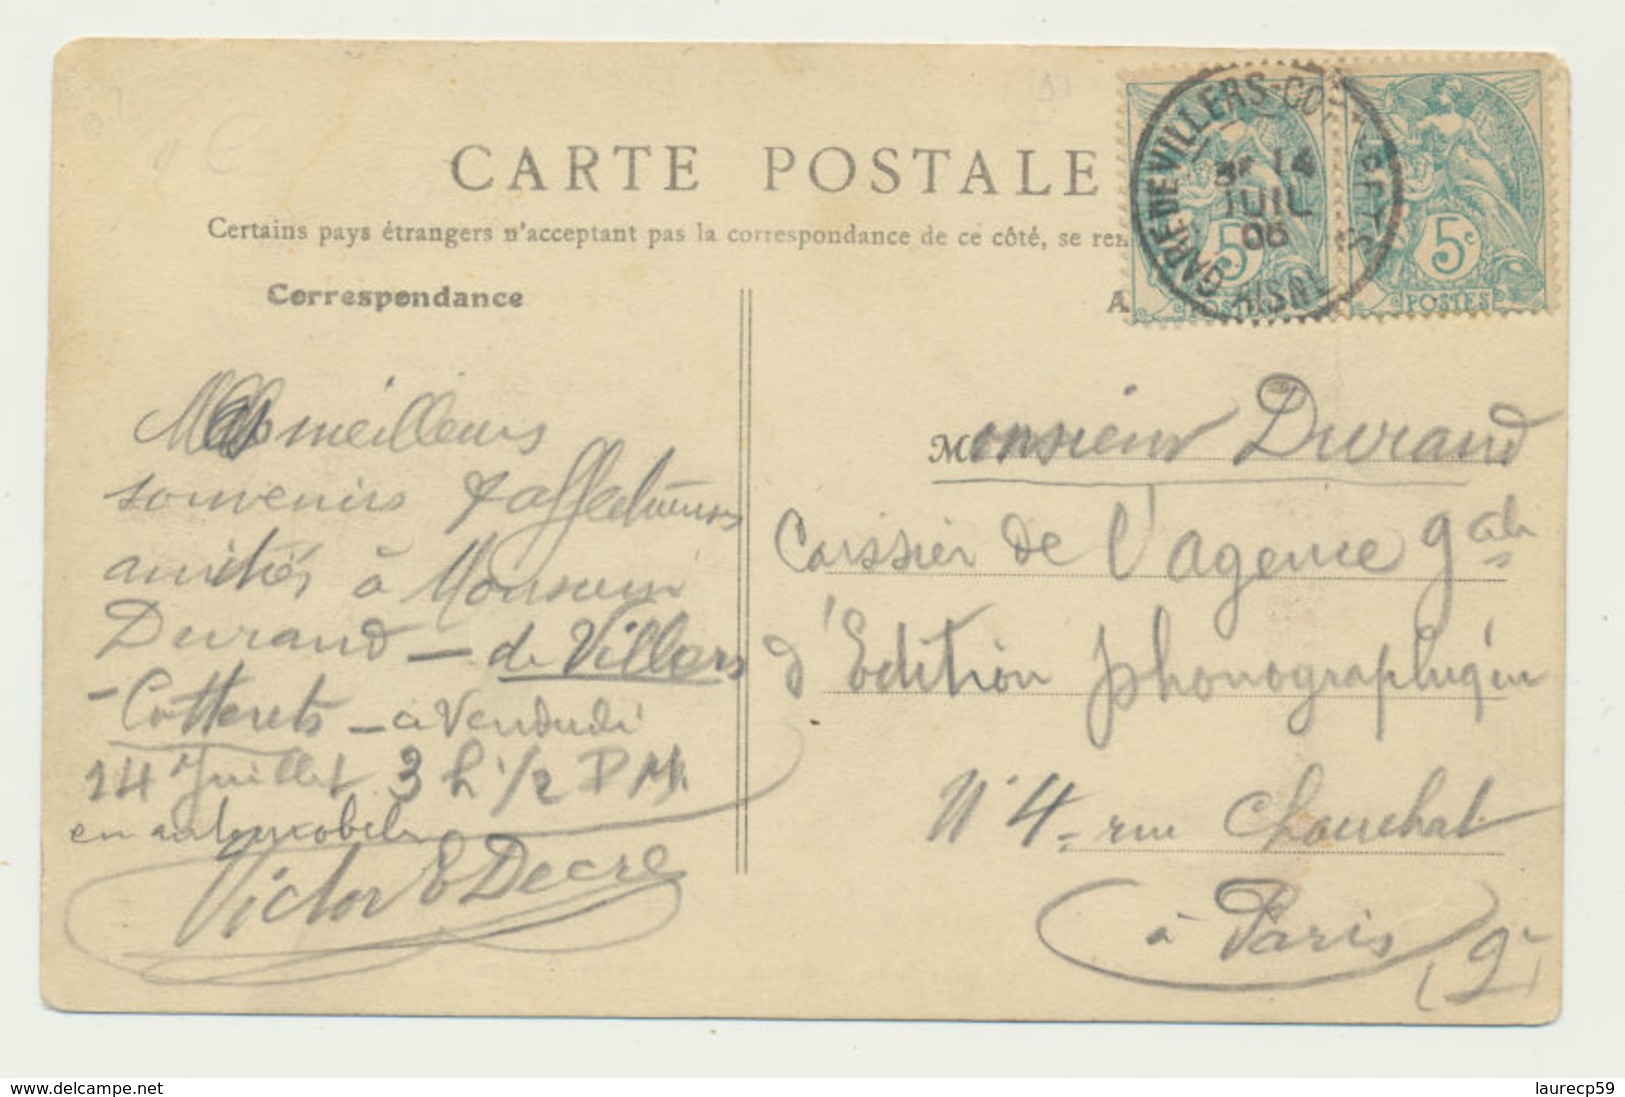 CARTE POSTALE
Certains pays étrangers n'acceptent pas la correspondance de ce côté, se ren
Correspondance
A
GARE DE VILLERS-COTTERETS
14
JUIL
06
AISNE
5c
POSTES
5c
POSTES
Mes meilleurs
souvenirs & affectueuses
amitiés à Monsieur
Durand — de Villers
-Cotterets — à Vendredi
14 Juillet 3 h 1/2 P.M.
en automobile
Victor E Decre
Monsieur Durand
Caissier de l'agence gale
d'Edition phonographique
N° 4, rue Chauchat
à Paris (9e)
www.delcampe.net
laurecp59